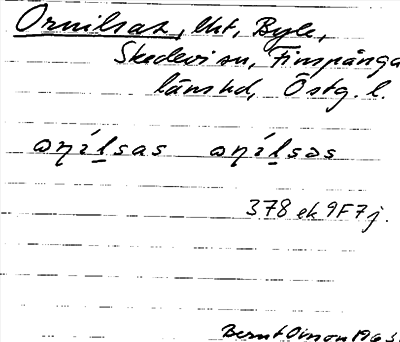 Ornilsat, lht, Byle,
Skedevi sn, Finspånga
länshd, Östg. l.
ωηílsas ωηílsəs
378 ek 9F7j.
Bernt Olsson 1963